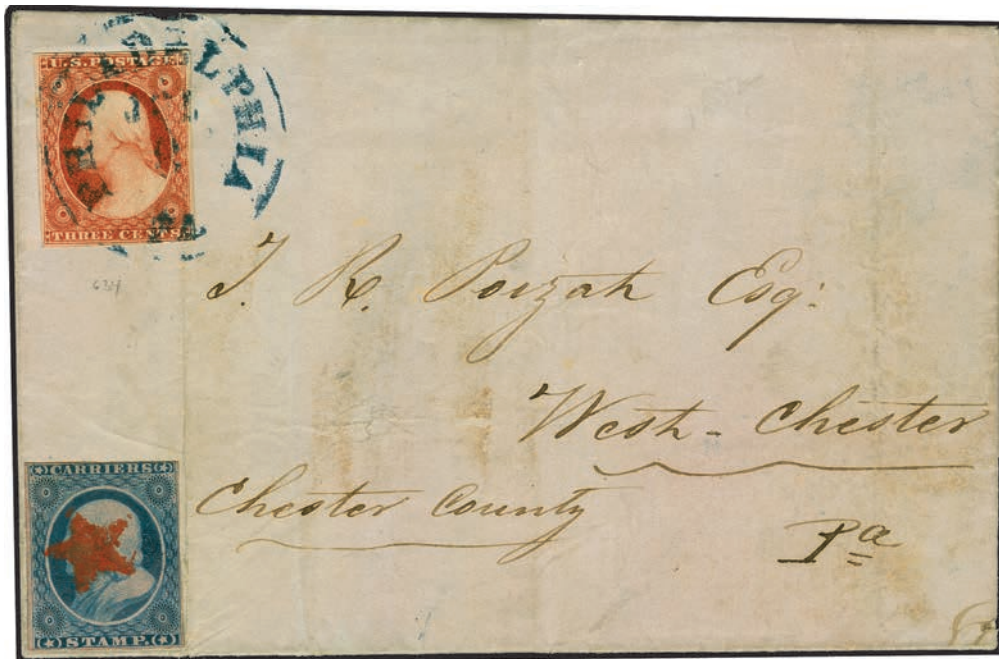 U.S. POSTAGE
THREE CENTS
PHILADELPHIA
PA
634
J. R. Poizat Esq.
West-Chester
Chester County
Pa
CARRIERS
STAMP.